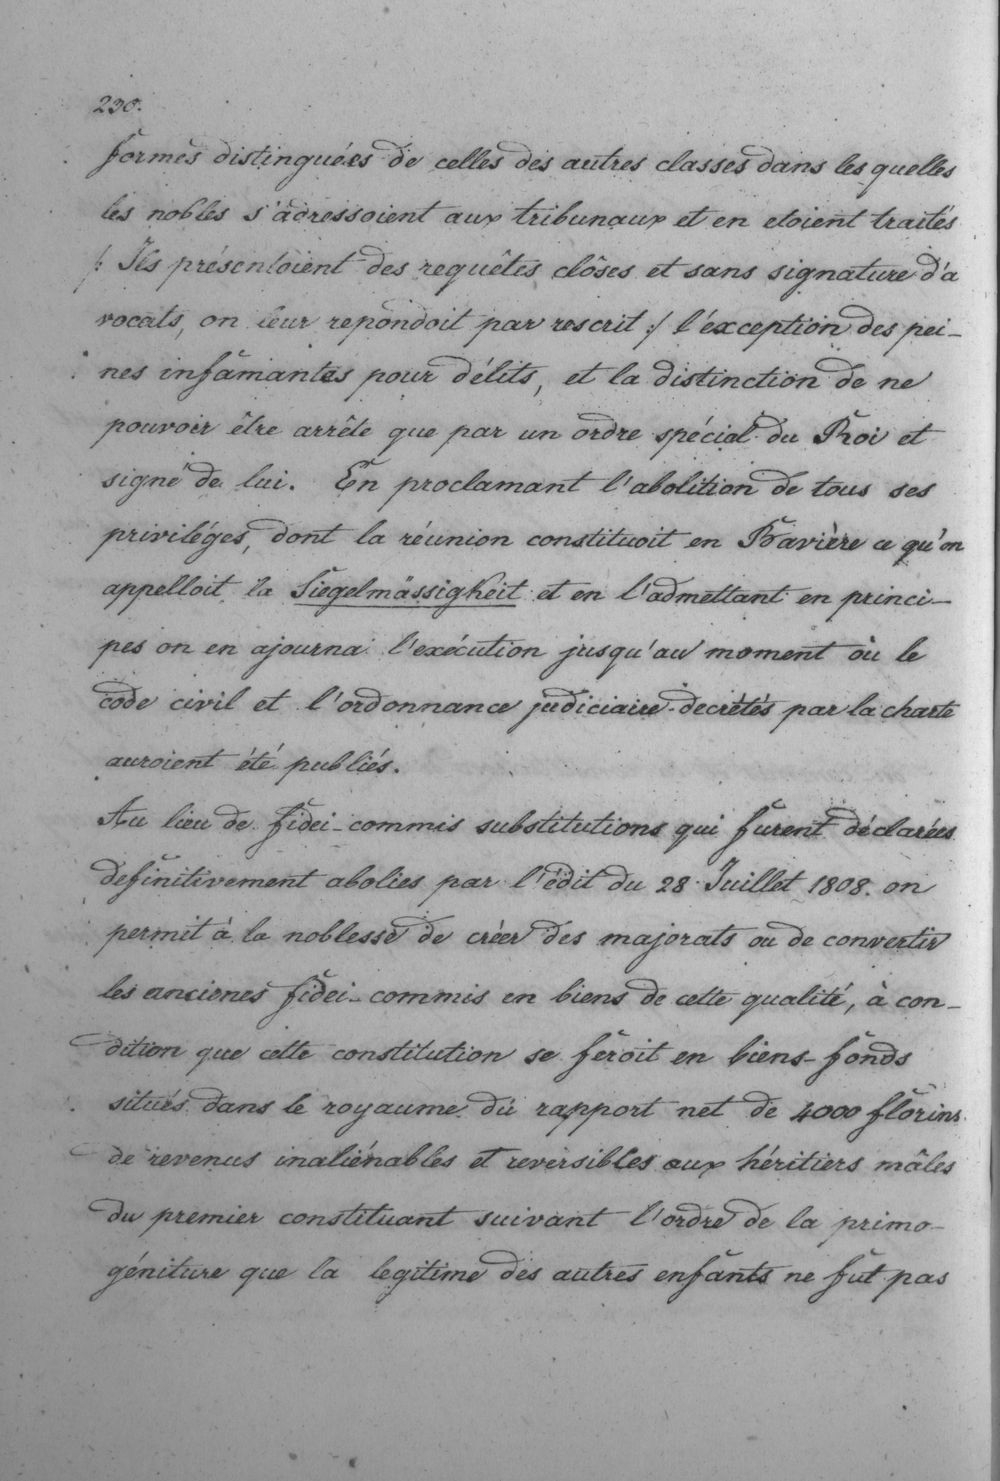 230.
formes distinguées de celles des autres classes dans les quelles
les nobles s'adressoient aux tribunaux et en etoient traités
/: Ils présentoient des requêtes clôses et sans signature d'a
vocats, on leur repondoit par rescrit :/ l'éxception des pei-
nes infâmantes pour délits, et la distinction de ne
pouvoir être arrête que par un ordre spécial du Roi et
signé de lui. En proclamant l'abolition de tous ses
priviléges, dont la réunion constituoit en Bavière ce qu'on
appelloit la Siegelmässigkeit et en l'admettant en princi-
pes on en ajourna l'exécution jusqu'au moment où le
code civil et l'ordonnance judiciaire decrètés par la charte
auroient été publiés.
Au lieu de fidei-commis substitutions qui furent déclarées
definitivement abolies par l'édit du 28 Juillet 1808. on
permit à la noblesse de créer des majorats ou de convertir
les ancienes fidei-commis en biens de cette qualité, à con-
dition que cette constitution se feroit en biens-fonds
situés dans le royaume du rapport net de 4000 florins
de revenus inaliénables et reversibles aux héritiers mâles
du premier constituant suivant l'ordre de la primo-
géniture que la legitime des autres enfants ne fut pas